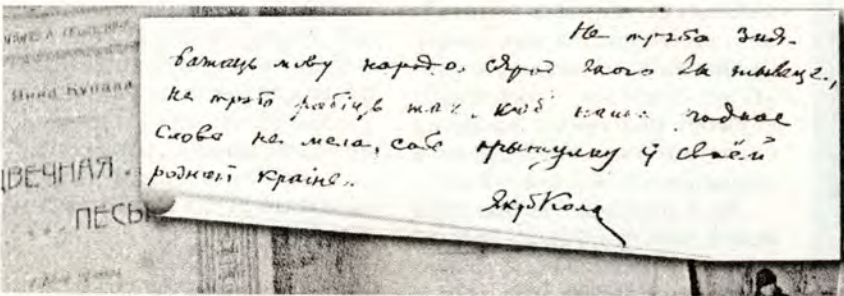 Янка Купала
ДВЕЧНАЯ
ПЕСЬ
Не трэба зня-
важаць мову народа, сярод якога Вы жывяце,
не трэба рабіць так, каб наша роднае
слова не мела сабе прытулку ў сваёй
роднай краіне..
Якуб Колас